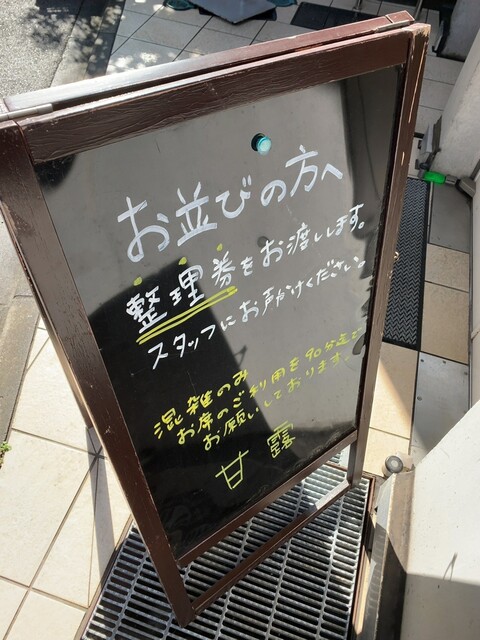 お並びの方へ
整理券をお渡しします。
スタッフにお声がけください。
混雑のみ
お席のご利用を90分迄で
お願いしております。
甘露